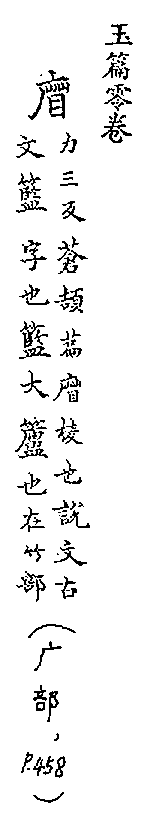 玉篇零卷
力三反蒼頡萹棱也說文古
文籃字也籃大也在竹部
（广部，P.458）